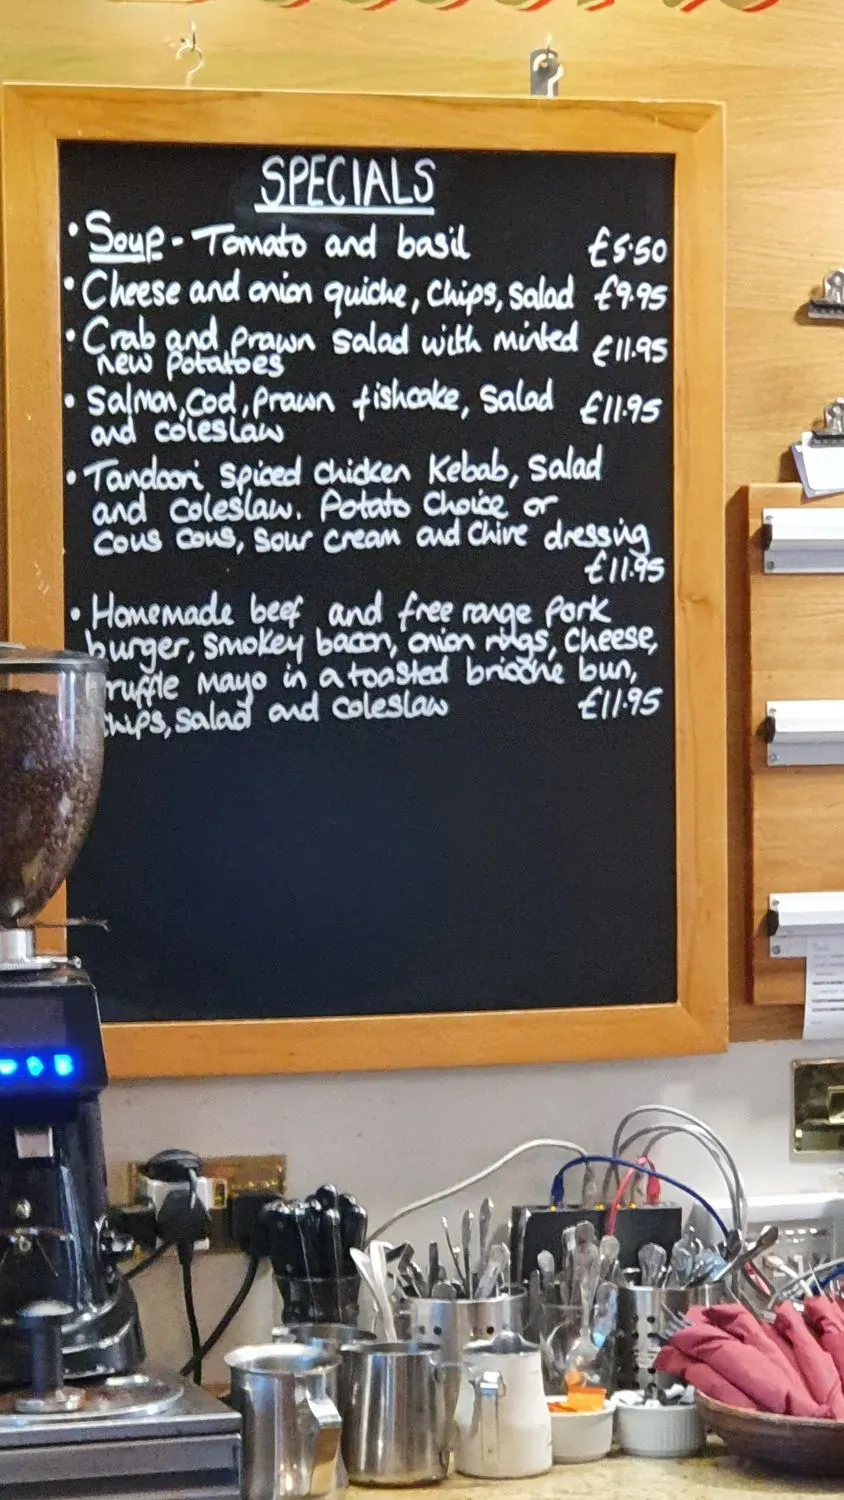 SPECIALS
• Soup - Tomato and basil £5.50
• Cheese and onion quiche, chips, salad £9.95
• Crab and prawn salad with minted £11.95
new potatoes
• Salmon, cod, prawn fishcake, salad £11.95
and coleslaw
• Tandoori spiced chicken kebab, salad
and coleslaw. Potato choice or
cous cous, sour cream and chive dressing
£11.95
• Homemade beef and free range pork
burger, smokey bacon, onion rings, cheese,
ruffle mayo in a toasted brioche bun,
hips, salad and coleslaw £11.95